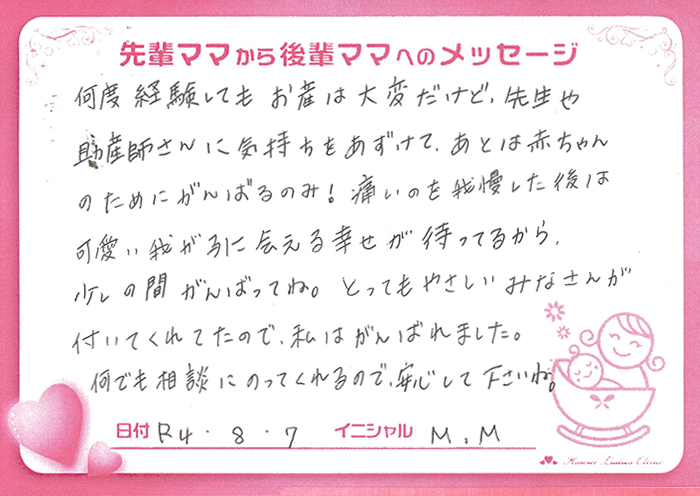 先輩ママから後輩ママへのメッセージ
何度経験してもお産は大変だけど、先生や
助産師さんに気持ちをあずけて、あとは赤ちゃん
のためにがんばるのみ！痛いのを我慢した後は
可愛い我が子に会える幸せが待ってるから、
少しの間がんばってね。とってもやさしいみなさんが
付いてくれてたので、私はがんばれました。
何でも相談にのってくれるので、安心して下さいね。
日付 R4・8・7 イニシャル M.M
Kawai Ladies Clinic